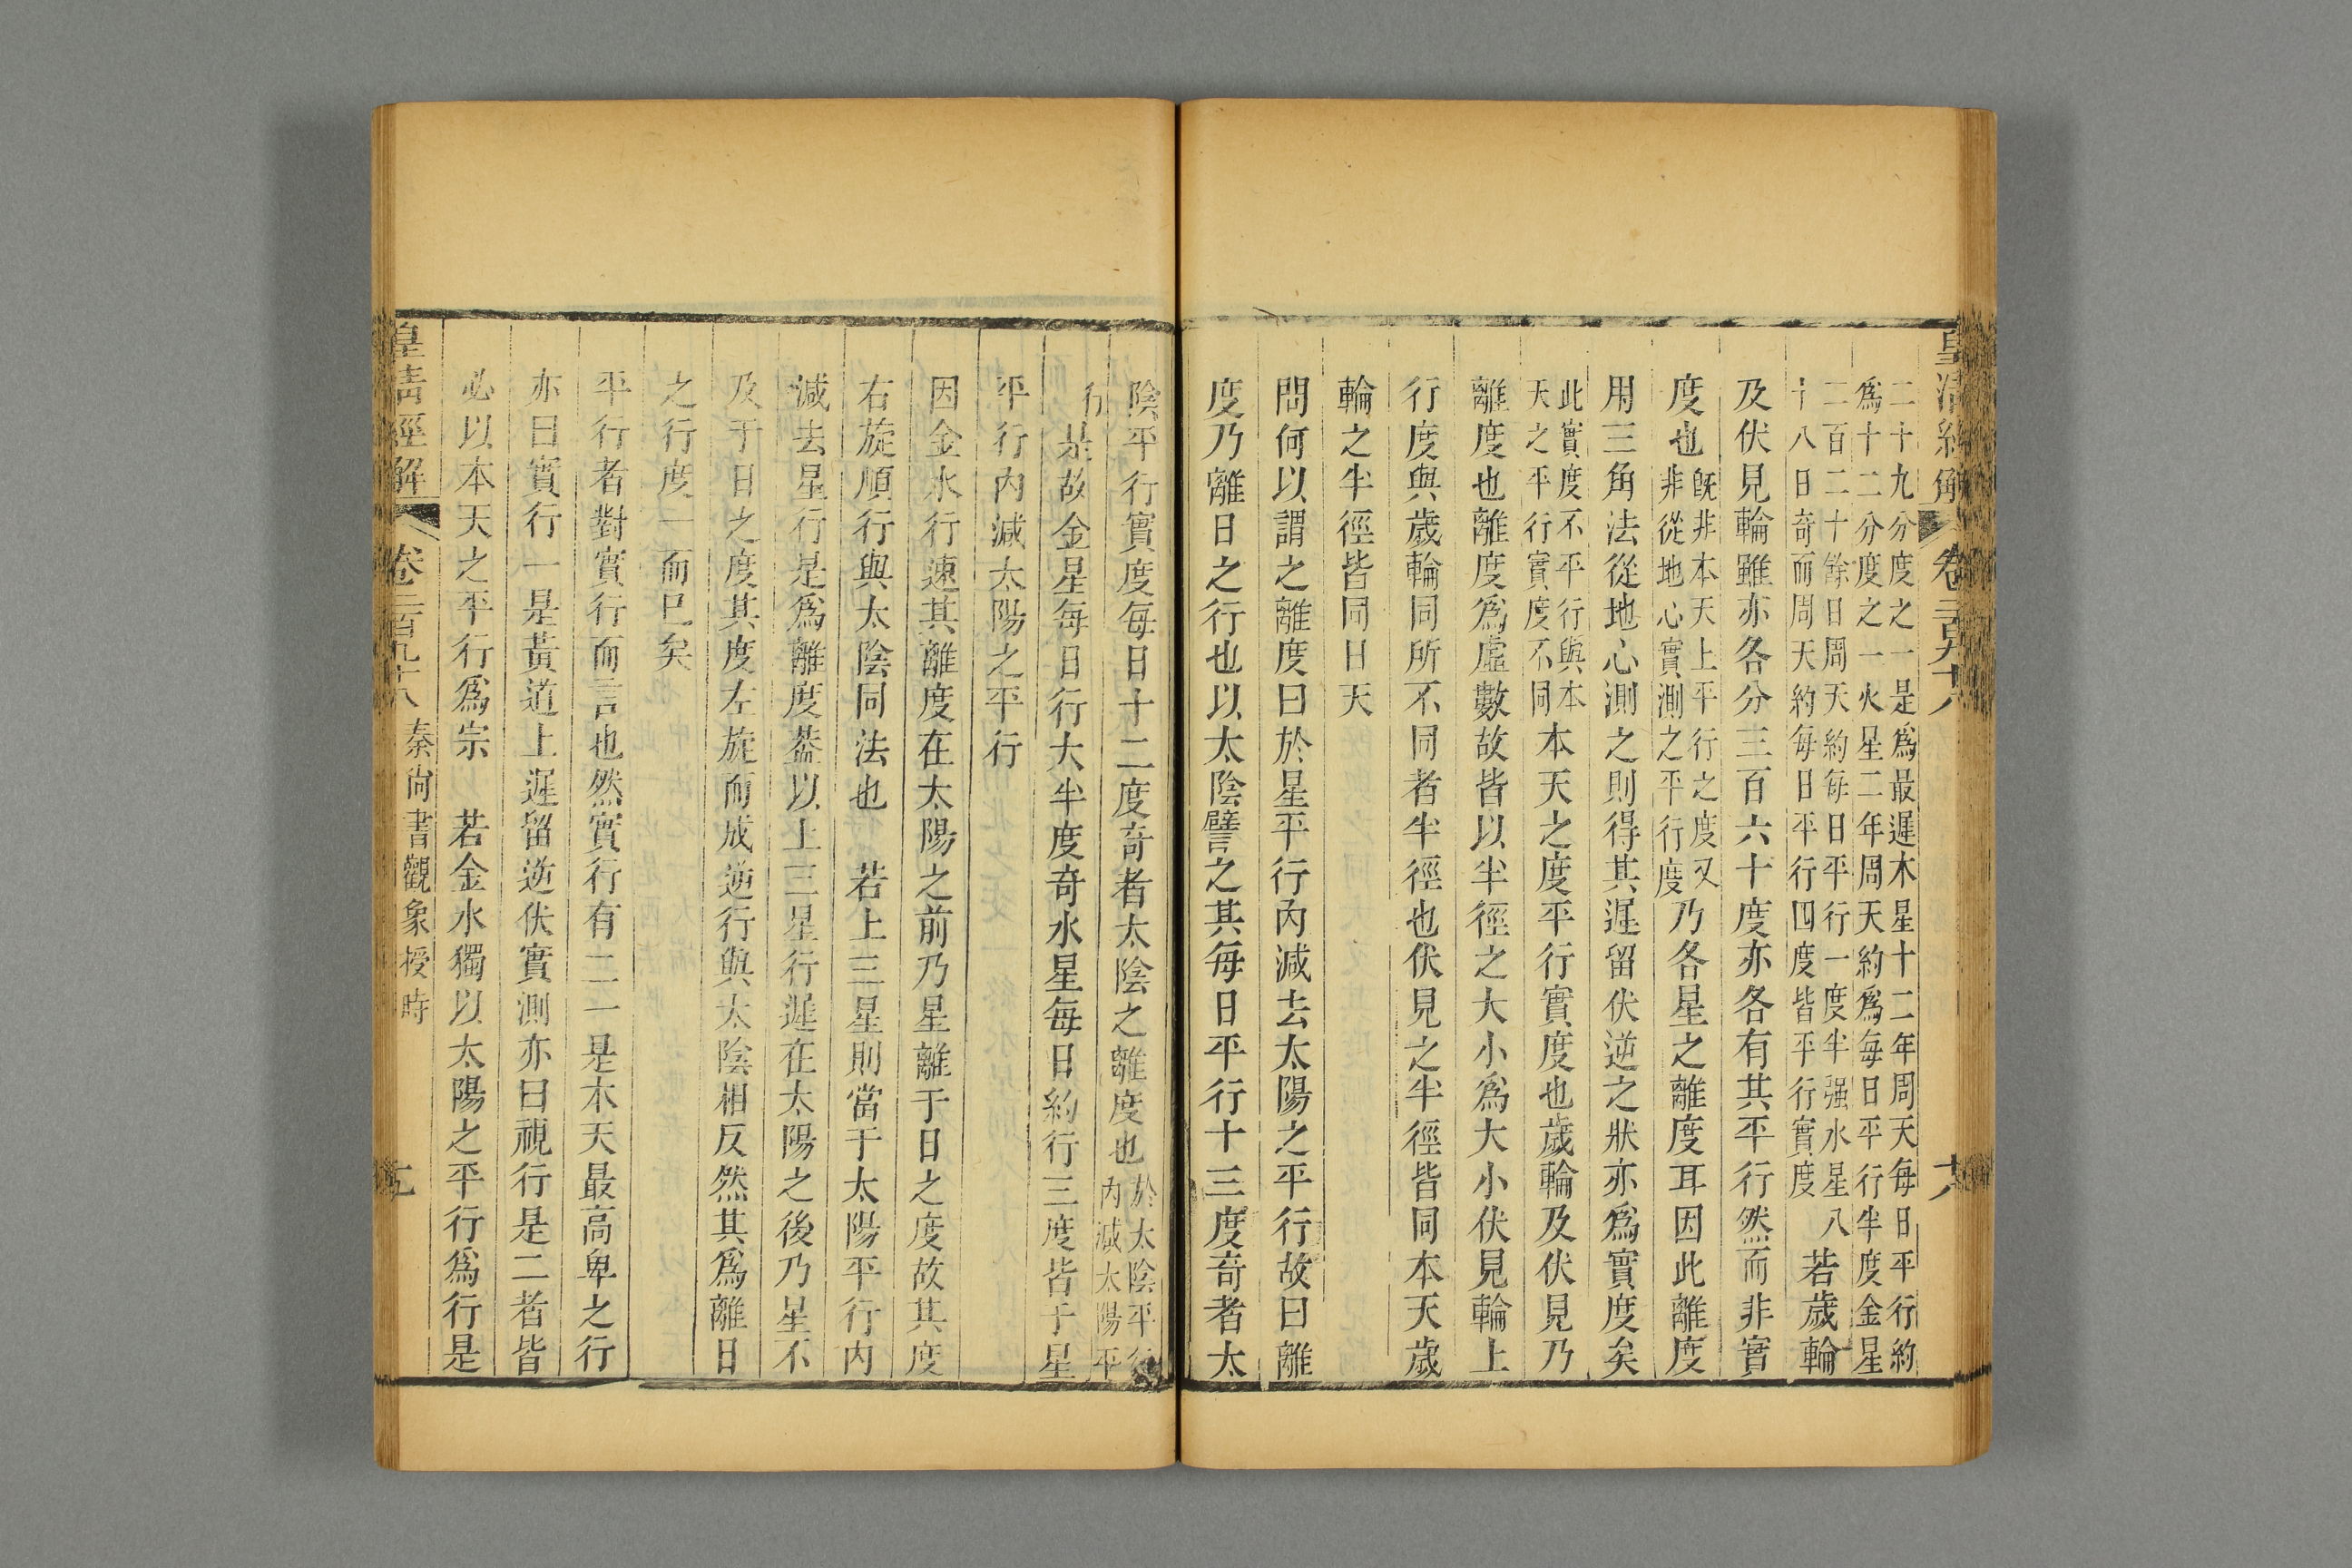 皇清經解
卷二百九十八
十八
二十九分度之一是爲最遲木星十二年周天每日平行約
爲十二分度之一火星二年周天約爲每日平行半度金星
二百二十餘日周天約每日平行一度半强水星八
十八日奇而周天約每日平行四度皆平行實度
若歲輪
及伏見輪雖亦各分三百六十度亦各有其平行然而非實
度也
既非本天上平行之度又
非從地心實測之平行度
乃各星之離度耳因此離度
用三角法從地心測之則得其遲留伏逆之狀亦爲實度矣
此實度不平行與本
天之平行實度不同
本天之度平行實度也歲輪及伏見乃
離度也離度爲虛數故皆以半徑之大小爲大小伏見輪上
行度與歲輪同所不同者半徑也伏見之半徑皆同本天歲
輪之半徑皆同日天
問何以謂之離度曰於星平行內減去太陽之平行故曰離
度乃離日之行也以太陰譬之其每日平行十三度奇者太
陰平行實度每日十二度奇者太陰之離度也
於太陰平行
內減太陽平
行
是故金星每日行大半度奇水星每日約行三度皆于星
平行內減太陽之平行
因金水行速其離度在太陽之前乃星離于日之度故其度
右旋順行與太陰同法也　若上三星則當于太陽平行內
減去星行是爲離度葢以上三星行遲在太陽之後乃星不
及于日之度其度左旋而成逆行與太陰相反然其爲離日
之行度一而巳矣
平行者對實行而言也然實行有二一是本天最高卑之行
亦曰實行一是黃道上遲留逆伏實測亦曰視行是二者皆
必以本天之平行爲宗　若金水獨以太陽之平行爲行是
皇清經解
卷二百九十八
秦尚書觀象授時